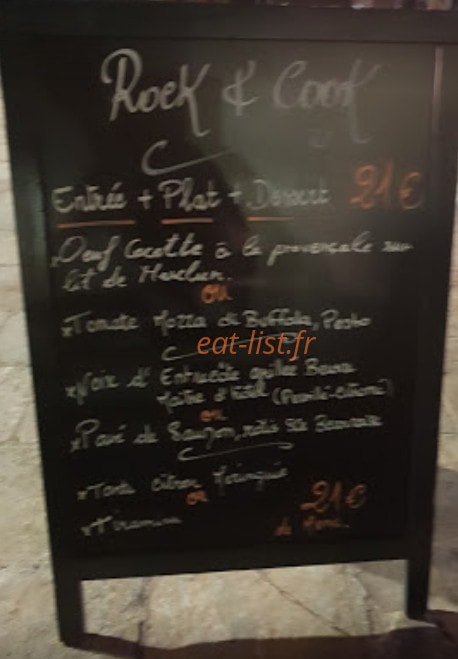 Rock & Cook
Entrée + Plat + Dessert 21€
Oeuf Cocotte à la provençale sur
lit de
ou
Tomate Mozza di Buffala, Pesto
eat-list.fr
Noix d'Entrecôte grillée Beurre
Maître d'hôtel
ou
Pavé de Saumon, Sce Béarnaise
Tarte citron Meringuée
ou
Tiramisu
21€
le Menu